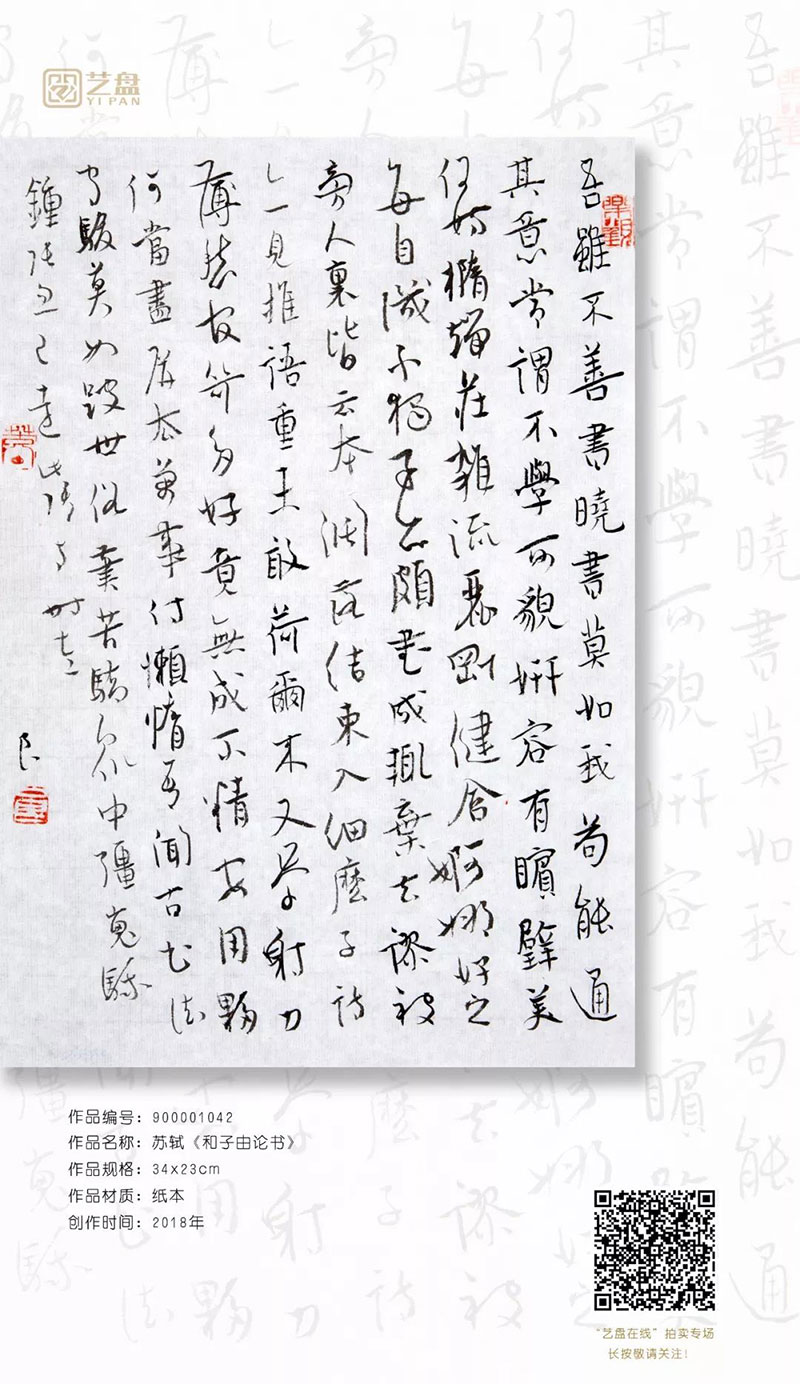 艺盘
YI PAN
吾雖不善書曉書莫如我苟能通
其意常謂不學可貌妍容有矉璧美
何妨橢端莊雜流麗剛健含婀娜好之
每自譏不獨子亦頗書成輒棄去謬被
旁人裹皆云本闊落結束入細麼子詩
亦見推語重未敢荷爾來又學射力
薄愁官笴多好竟無成不精安用夥
何當盡屏去萬事付懶惰吾聞古書法
守駿莫如跛世俗筆苦驕眾中彊嵬騀
鍾張忽已遠此語与時左
作品编号：900001042
作品名称：苏轼《和子由论书》
作品规格：34x23cm
作品材质：纸本
创作时间：2018年
“艺盘在线”拍卖专场
长按敬请关注！